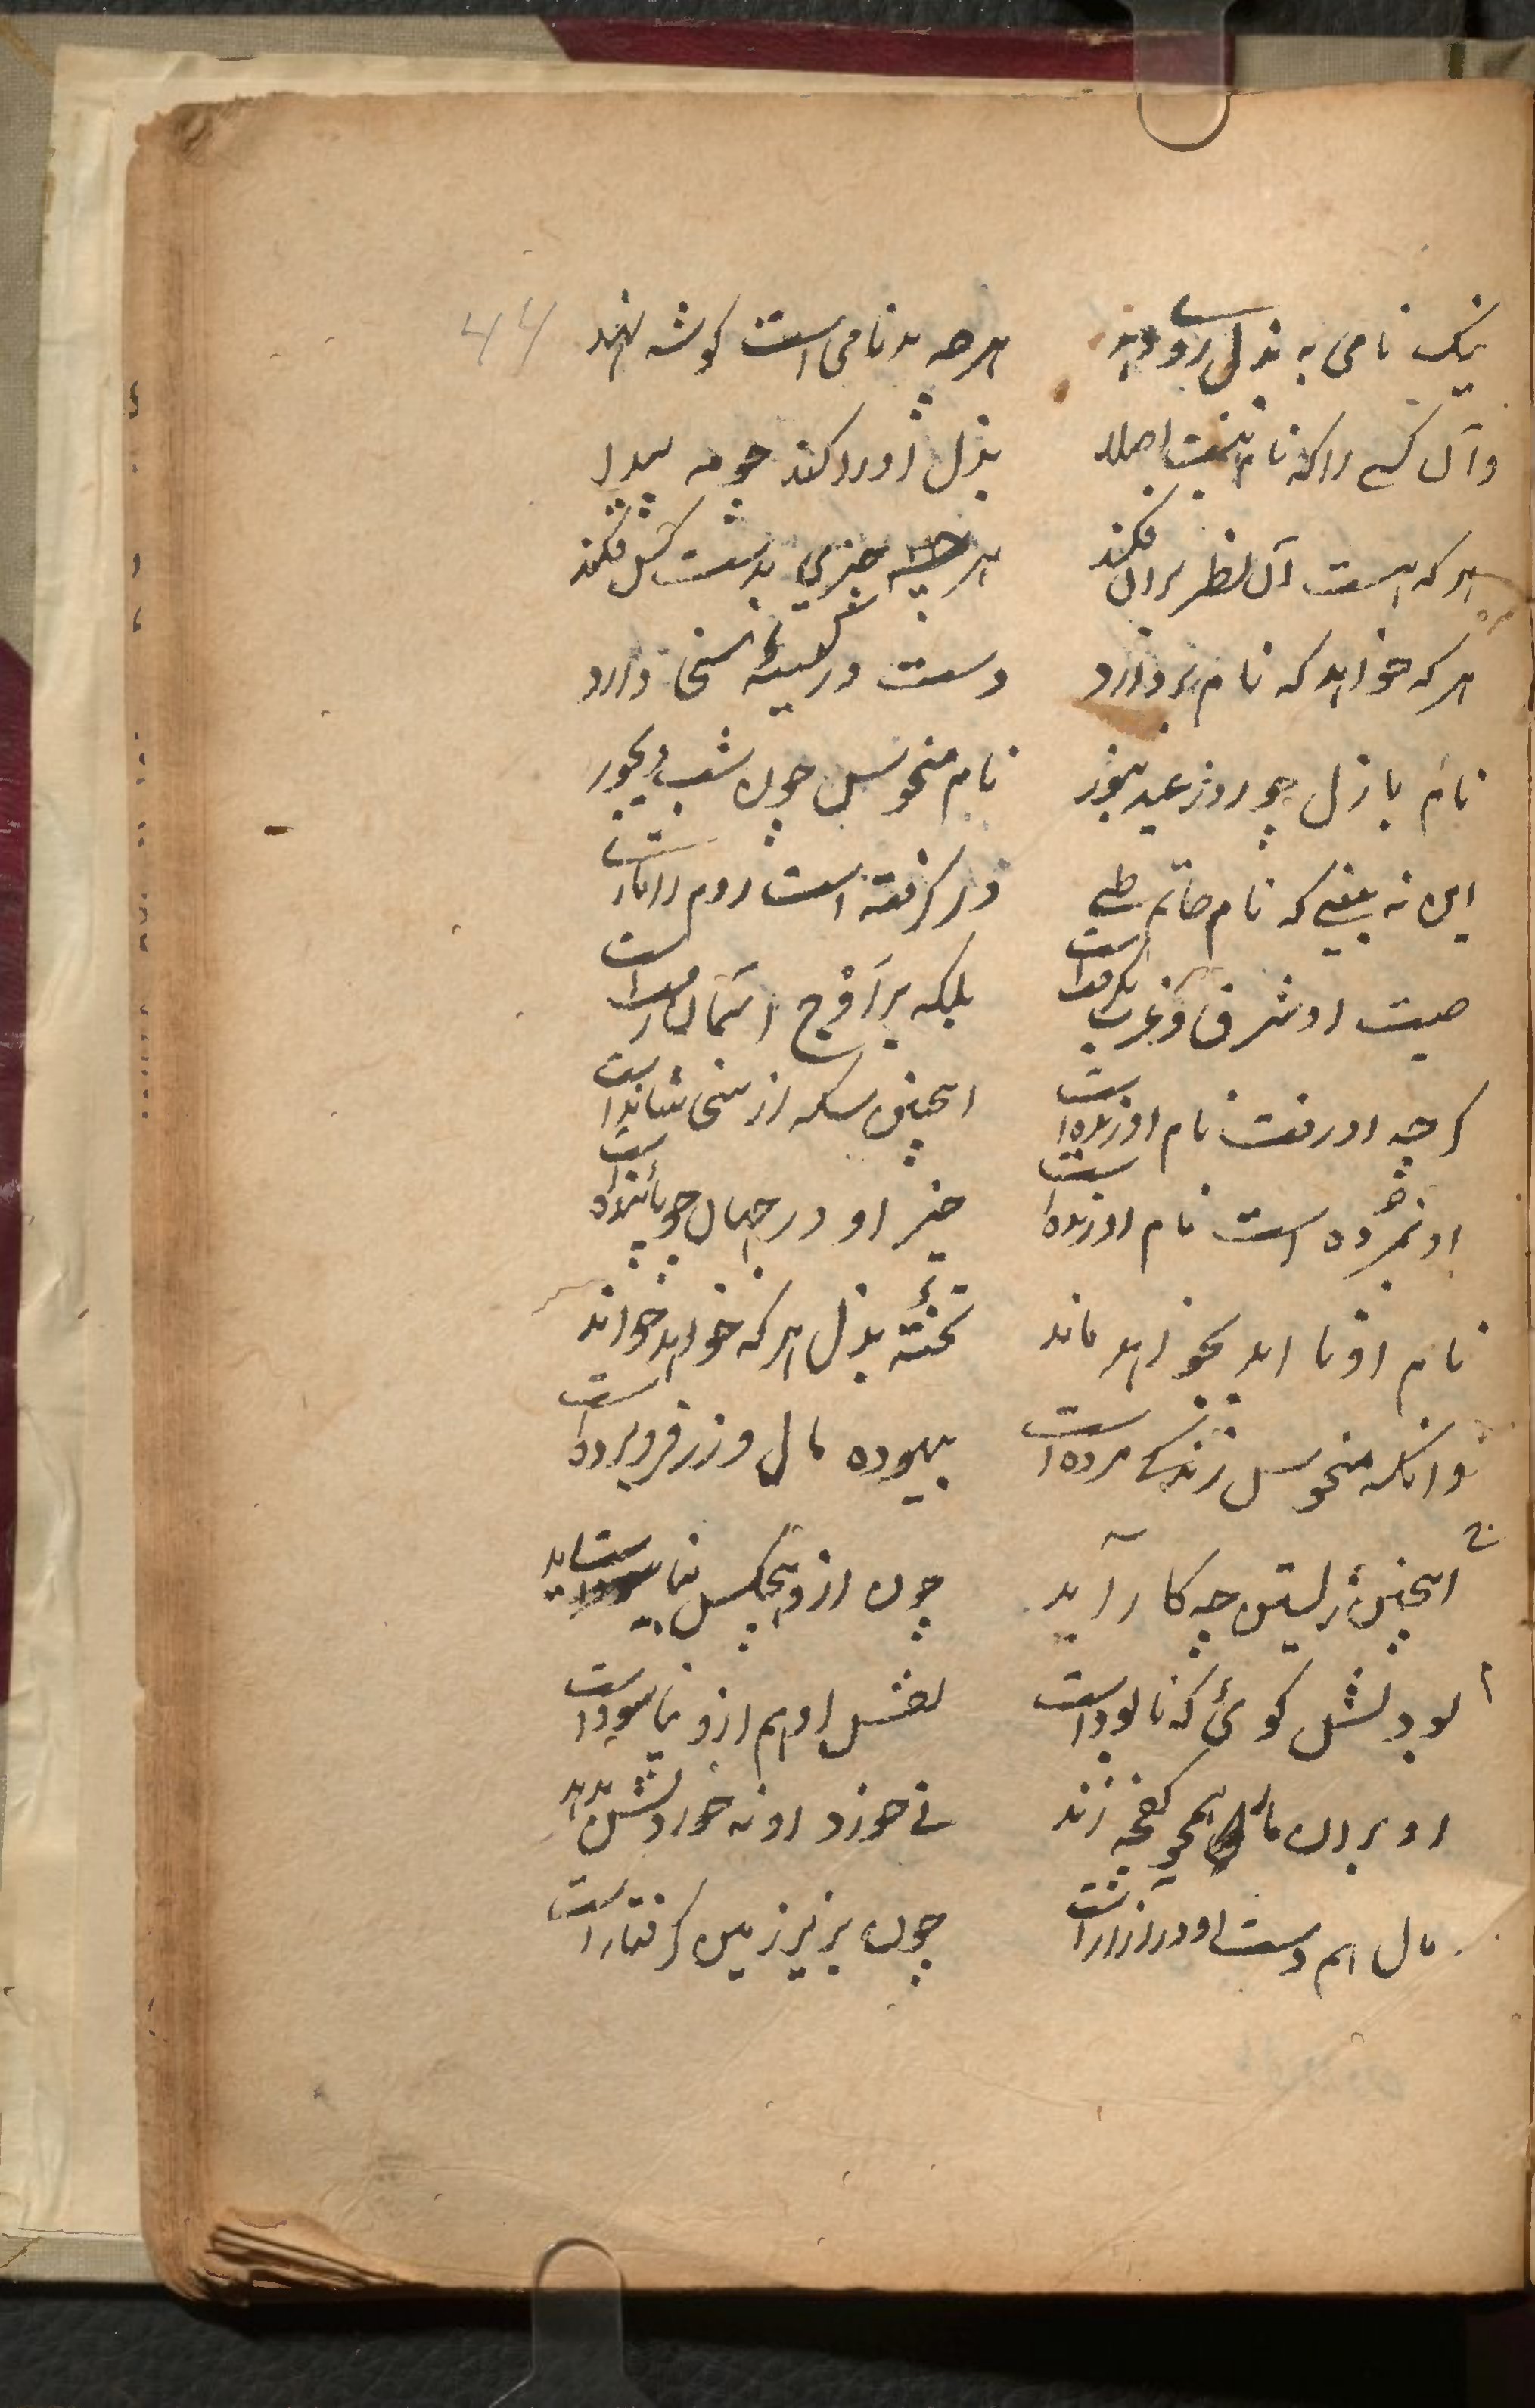 نیک نامی به بذل روی دهد هرچه بدنامی است گوشه نهد
وآن کسے را که نام نیست اصلا بذل او را کند چو مه پیدا
هر که هست آن نظر بران فکند هرچه چیزی بدست کس فکند
هر که خواهد که نام بردارد دست در کیسهٔ سخی دارد
نام باذل چو روز عید هنوز نام منحوس چون شب دیجور
این نه بینی که نام حاتم طے در گرفته است روم را تا رے
صیت او شرق و غرب بگرفت است بلکه بر اوج آسمان رفت است
گرچه او رفت نام او زنده است اینچنین سکه از سخی شانده است
او نمرده است نام او زنده است خیر او در جهان چو پاینده است
نام او تا ابد بخواهد ماند تختهٔ بذل هر که خواهد خواند
وانکه منحوس زندگی مرده است بیهوده مال و زر فرو برده است
اینچنین زیستن چه کار آید چون ازو هیچکس نیاساید
بودنش گوئی که نابود است نفس او هم ازو نیاسود است
او بران مال همچو کفچه زند نے خورد او نه خوردنش بدهد
مال هم دست او در آزار است چون بزیر زمین گرفتار است